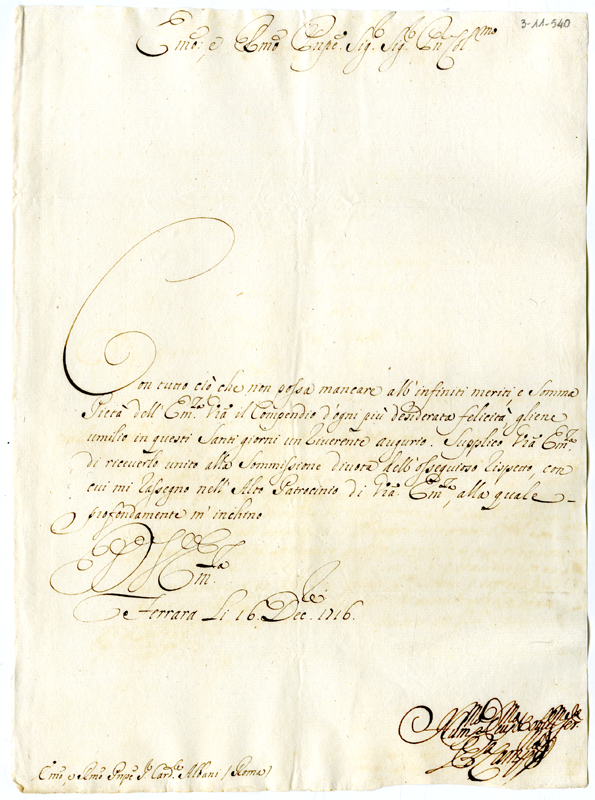 3-11-540
Emo: e Rmo Pnpe. Sig: Sig: Pn Col.mo
Con tutto ciò che non possa mancare all'infiniti meriti, e Somma
Pietà dell'Em.za Vra il Compendio d'ogni più desiderata felicità, gliene
umilio in questi Santi giorni un riverente augurio. Supplico Vra Em.za
di riceverlo unito alla Sommissione divota dell'ossequioso rispetto, con
cui mi rassegno nell'Alto Patrocinio di Vra Em.za, alla quale
profondamente m'inchino
Em.za
Ferrara Li 16. Dec.le 1716.
Emo, e Rmo Pnpe Sr Card.le Albani (Roma)